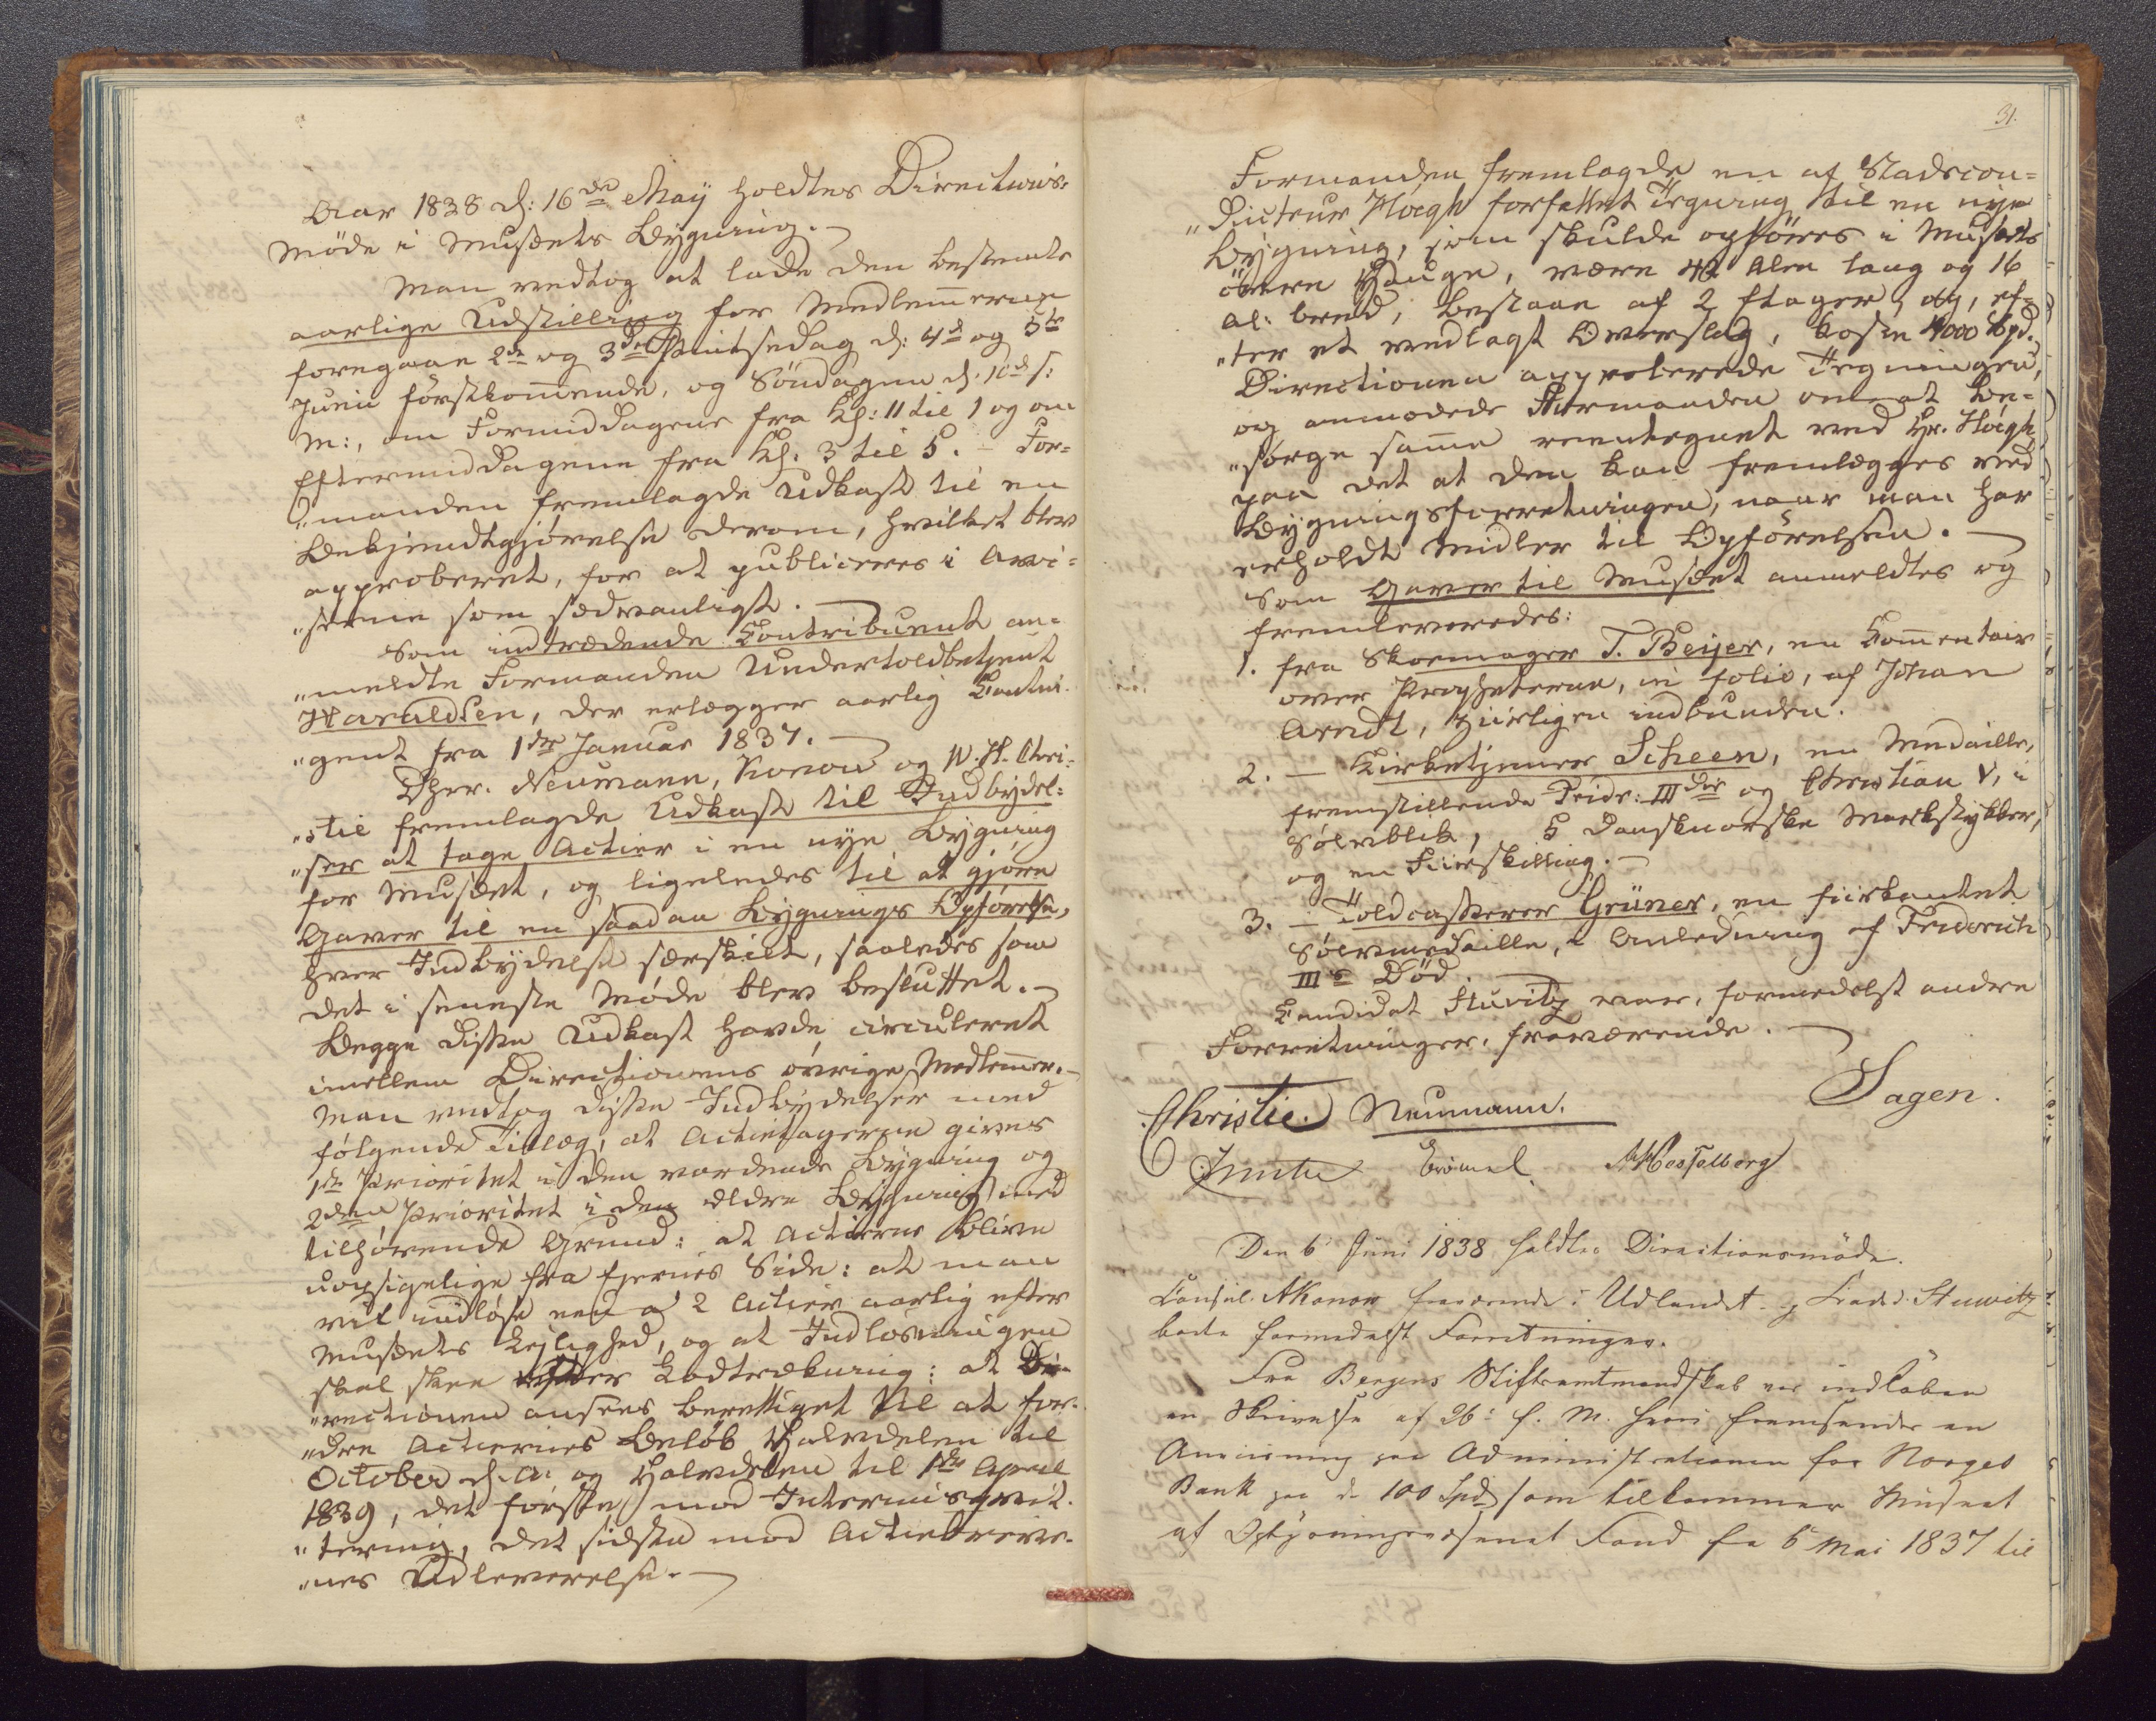 Aar 1838 d: 16de May holdtes Directions-
Möde i Musæets Bygning. -
Man vedtog at lade den bestemte
aarlige Udstilling for Medlem̅erne
foregaae 2den og 3die Pintsedag d: 4de og 5te
Junii förstkom̅ende, og Söndagen d. 10de s:
M:, om Formiddagene fra Kl: 11 til 1 og om
Eftermiddagene fra Kl. 3 til 5. - For=
"manden fremlagde Udkast til en
Bekjendtgjörelse derom, hvilket blev
approberet, for at publiceres i Avi=
"serne som sædvanligt. -
Som indtrædende Contribuent an=
"meldte Formanden Undertoldbetjent
Haraldsen, der erlægger aarlig Contin-
"gent fra 1ste Januar 1837. -
Dhrr. Neumann, Konow og W. H. Chri=
"stie fremlagde Udkast til Indbydel=
"ser at tage Actier i en nye Bygning
for Musæet, og ligeledes til at gjöre
Gaver til en saadan Bygnings Opförelse,
hver Indbydelse særskilt, saaledes som
det i seneste Möde blev besluttet. -
Begge disse Udkast havde circuleret
imellem Directionens övrige Medlem̅er. -
Man vedtog disse Indbydelser med
fölgende Tillæg, at Actietagerne gives
1ste Prioritet i den vordende Bygning og
2den Prioritet i den ældre Bygning med
tilhörende Grund: at Actierne blive
uopsigelige fra Ejernes Side: at man
vil indlöse een a 2 Actier aarlig efter
Musæets Lejlighed, og at Indlösningen
skal skee efter Lodtrækning: at Di-
"rectionen ansees berettiget til at for-
"dre Actiernes Belöb Halvdelen til
October d. A. og Halvdelen til 1ste April
1839, det förste mod Interimsqvit-
"tering, det sidste mod Actiebreve-
"nes Udleverelse. -
31.
Formanden fremlagde en af Stadscon=
"ducteur Höegh forfattet Tegning til en nye
Bygning, som skulde opföres i Musæets
övere Hauge, være 42 Alen lang og 16
Al: bred, bestaae af 2 Etager, og, ef=
"ter et vedlagt Overslag, koste 4000 Spd.
Directionen approberede Tegningen,
og anmodede Formanden om at be=
"sörge sam̅e reentegnet ved Hr. Höegh
paa det at den kan fremlægges ved
Bygningsforretningen, naar man har
erholdt Midler til Opförelsen. -
Som Gaver til Musæet anmeldtes og
fremleveredes:
1. fra Skoemager T. Beijer, en Com̅entair
over Propheterne, in folio, af Johan
Arndt, ziirligen indbunden.
2. - Kirketjener Scheen, en Medaille,
fremstillende Fridr: IIIdie og Christian V, i
Sölvblik, 5 dansknorske Markstykker,
og en Fiirskilling. -
3. - Toldcasserer Grüner, en fiirkantet
Sölvmedaille, i Anledning af Friderich
IIIs Död.
Candidat Stuvitz var, formedelst andre
Forretninger, fraværende. -
Sagen.
Christie. Neumann.
Den 6 Juni 1838 holdtes Directionsmöde.
Consul A Konow fraværende i Udlandet og Candid. Stuwitz
borte formedelst Forretninger.
Fra Bergens Stiftamtmandskab var indlöben
en Skrivelse af 26 f. M. hvori fremsendes en
Anviisning paa Administrationen for Norges
Bank paa de 100 Spd. som tilkommer Museet
af Oplysningsvæsenet Fond fra 6 Mai 1837 til